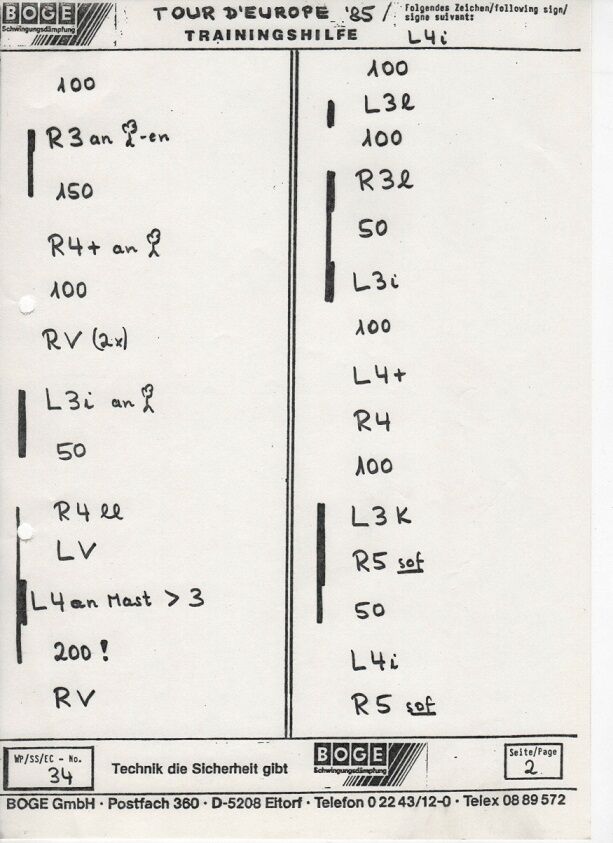 BOGE
Schwingungsdämpfung
TOUR D'EUROPE '85 /
TRAININGSHILFE
Folgendes Zeichen/following sign/
signe suivant:
L4i
100
R3 an -en
150
R4+ an
100
RV (2x)
L3i an
50
R4 ll
LV
L4 an Mast > 3
200!
RV
100
L3l
100
R3l
50
L3i
100
L4+
R4
100
L3K
R5 sof
50
L4i
R5 sof
WP/SS/EC - No.
34
Technik die Sicherheit gibt
BOGE
Schwingungsdämpfung
Seite/Page
2
BOGE GmbH · Postfach 360 · D-5208 Eitorf · Telefon 0 22 43/12-0 · Telex 08 89 572